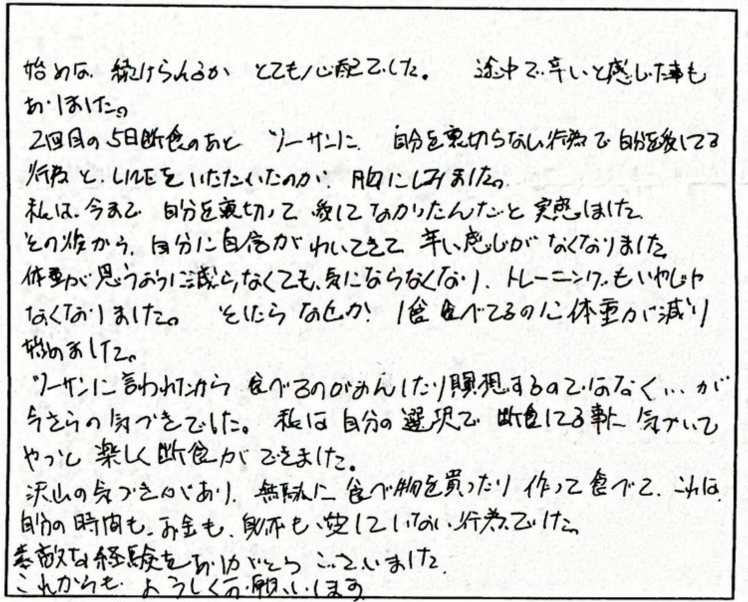 始めは、続けられるか とても心配でした。 途中で辛いと感じた事も
ありました。
2回目の5日断食のあと ツーサンに、自分を裏切らない行為で自分を愛してる
行為と、LINEをいただいたのが、胸にしみました。
私は、今まで 自分を裏切って 愛して なかったんだと 実感しました
その後から、自分に自信が わいてきて 辛い感じがなくなりました
体重が思うように減らなくても、気にならなくなり、トレーニングもいやじゃ
なくなりました。 そしたら なぜか! 1食食べてるのに体重が減り
始めました。
ツーサンに言われたから 食べるのがまんしたり瞑想するのではなく…が
今さらの気づきでした。 私は 自分の選択で 断食してる事に 気づいて
やっと 楽しく断食ができました。
沢山の気づきがあり、無駄に 食べ物を買ったり 作って食べて、これは、
自分の時間も、お金も、身体も愛していない行為でした
素敵な経験をありがとうございました
これからも よろしくお願いします